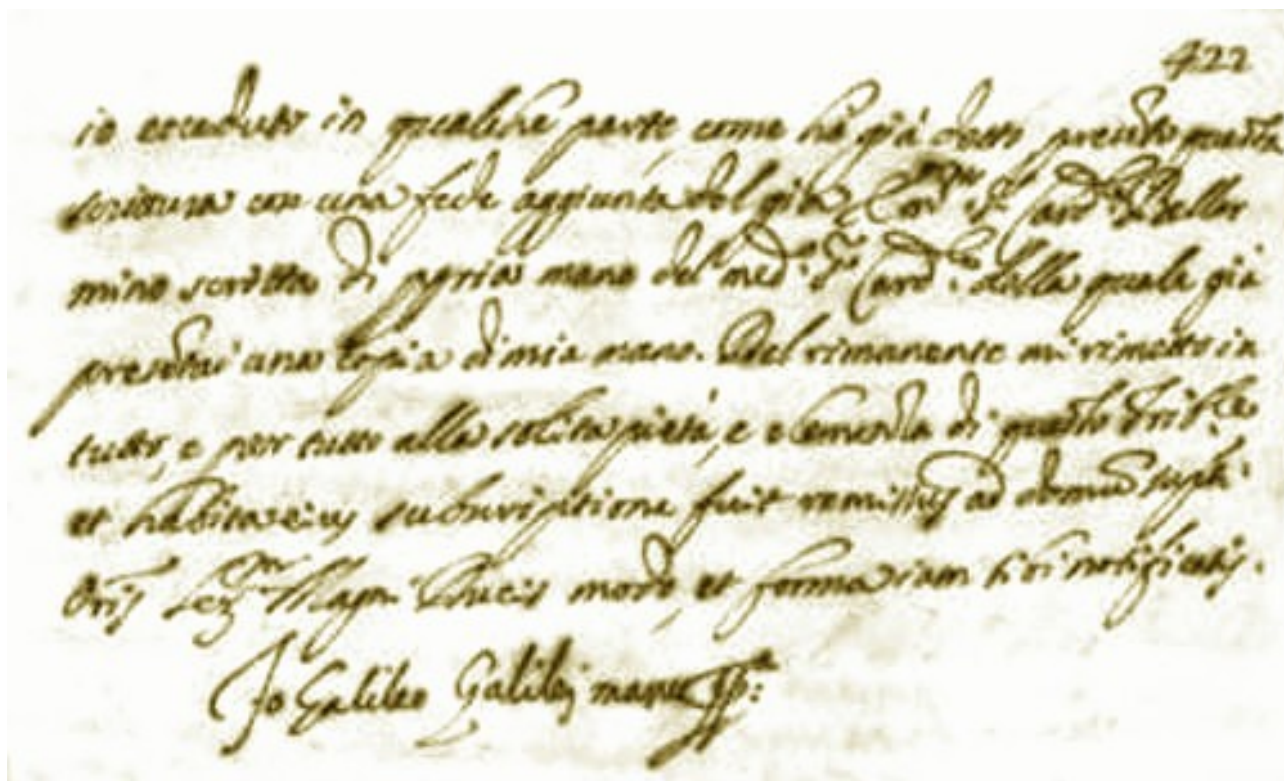 422
io ecceduto in qualche parte come hò già detto, presento questa
scrittura con una fede aggiunta del già Em.mo S.r Card.le Bellar
mino scritta di propria mano del med.o S.r Card.le della quale già
presentai una copia di mia mano. Del rimanente mi rimetto in
tutto, e per tutto alla solita pietà, e clemenza di questo Trib.le
et habita eius subscriptione fuit remissus ad domum supti
Oris Ser.mi Magni Ducis modo et forma iam sibi notificatis.
Io Galileo Galilei manu pp.a: